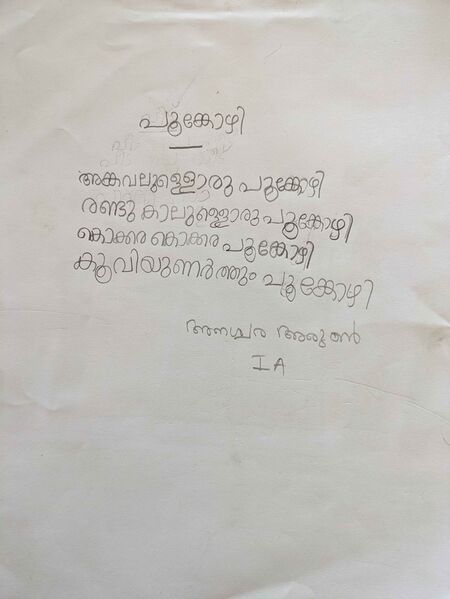 പൂങ്കോഴി
അങ്കവാലുള്ളൊരു പൂങ്കോഴി
രണ്ടു കാലുള്ളൊരു പൂങ്കോഴി
കൊക്കര കൊക്കര പൂങ്കോഴി
കൂവിയുണർത്തും പൂങ്കോഴി
അനശ്വര അരുൺ
I A